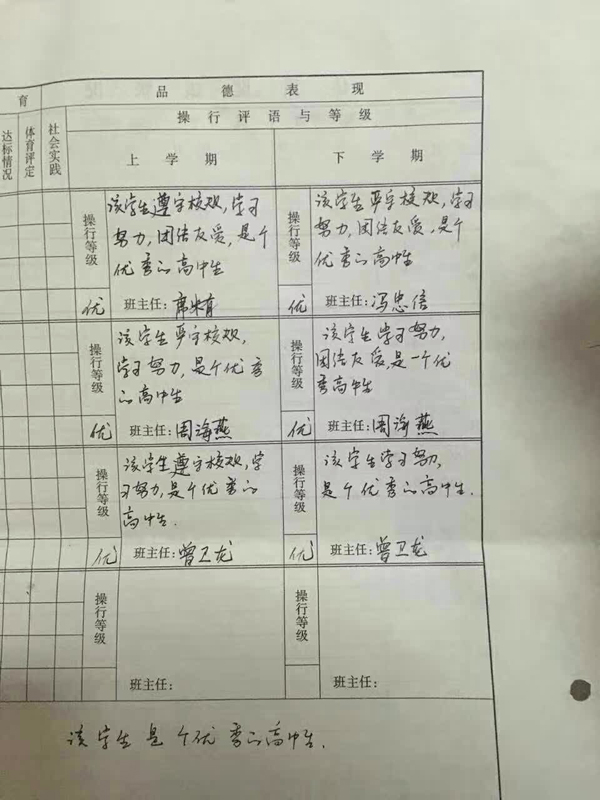 育 品德表现
操行评语与等级
达标情况 体育评定 社会实践 上学期 下学期
操行等级 该学生遵守校规,学习
努力,团结友爱,是个
优秀的高中生
优 班主任:
操行等级 该学生严守校规,学习
努力,团结友爱,是个
优秀的高中生
优 班主任:冯忠信
操行等级 该学生严守校规,
学习努力,是个优秀
的高中生
优 班主任:周海燕
操行等级 该学生学习努力,
团结友爱,是一个优
秀高中生
优 班主任:周海燕
操行等级 该学生遵守校规,学
习努力,是个优秀的
高中生.
优 班主任:曾卫龙
操行等级 该学生学习努力,
是个优秀的高中生.
优 班主任:曾卫龙
操行等级
班主任:
操行等级
班主任:
该学生是个优秀的高中生.